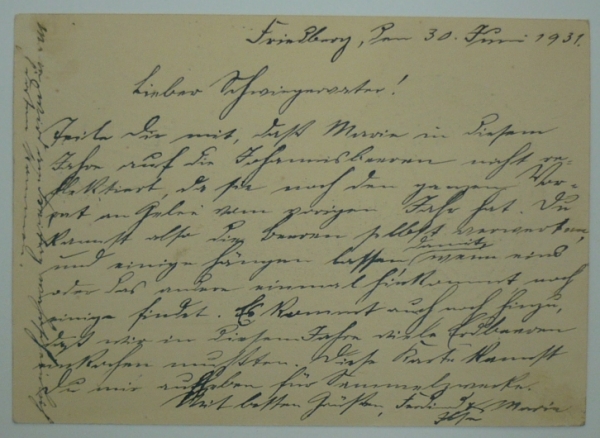 Friedberg, den 30. Juni 1931.
Lieber Schwiegervater!
Teile Dir mit, daß Marie in diesem
Jahre auf die Johannisbeeren nicht re-
flektiert, da sie noch den ganzen Vor-
rat an Gelee vom vorigen Jahr hat. Du
kannst also die Beeren selbst verwerten,
und einige hängen lassen, damit wenn eins
oder das andere einmal hinkommt noch
einige findet. Es kommt auch noch hinzu,
daß wir in diesem Jahre viele Erdbeeren
einkochen mußten. Diese Karte kannst
Du mir aufheben für Sammelzwecke.
Mit besten Grüßen, Ferdinand, Marie
Ilse